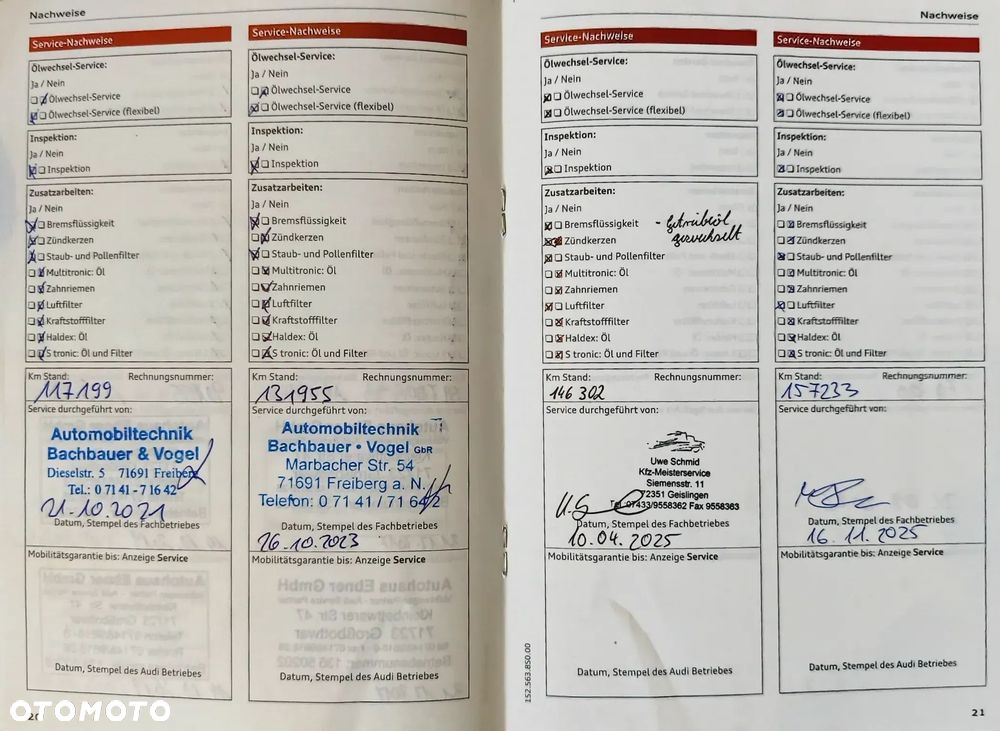 Nachweise
Service-Nachweise
Ölwechsel-Service:
Ja / Nein
Ölwechsel-Service
Ölwechsel-Service (flexibel)
Inspektion:
Ja / Nein
Inspektion
Zusatzarbeiten:
Ja / Nein
Bremsflüssigkeit
Zündkerzen
Staub- und Pollenfilter
Multitronic: Öl
Zahnriemen
Luftfilter
Kraftstofffilter
Haldex: Öl
S tronic: Öl und Filter
Km Stand: Rechnungsnummer:
117199
Service durchgeführt von:
Automobiltechnik
Bachbauer & Vogel
Dieselstr. 5 71691 Freiberg
Tel.: 0 71 41 - 7 16 42
21.10.2021
Datum, Stempel des Fachbetriebes
Mobilitätsgarantie bis: Anzeige Service
Datum, Stempel des Audi Betriebes
20
Service-Nachweise
Ölwechsel-Service:
Ja / Nein
Ölwechsel-Service
Ölwechsel-Service (flexibel)
Inspektion:
Ja / Nein
Inspektion
Zusatzarbeiten:
Ja / Nein
Bremsflüssigkeit
Zündkerzen
Staub- und Pollenfilter
Multitronic: Öl
Zahnriemen
Luftfilter
Kraftstofffilter
Haldex: Öl
S tronic: Öl und Filter
Km Stand: Rechnungsnummer:
131955
Service durchgeführt von:
Automobiltechnik
Bachbauer • Vogel GbR
Marbacher Str. 54
71691 Freiberg a. N.
Telefon: 0 71 41 / 71 64 2
Datum, Stempel des Fachbetriebes
26.10.2023
Mobilitätsgarantie bis: Anzeige Service
Autohaus Ebner GmbH
71723 Großbottwar
Datum, Stempel des Audi Betriebes
Service-Nachweise
Ölwechsel-Service:
Ja / Nein
Ölwechsel-Service
Ölwechsel-Service (flexibel)
Inspektion:
Ja / Nein
Inspektion
Zusatzarbeiten:
Ja / Nein
Bremsflüssigkeit - Getriebeöl
Zündkerzen gewechselt
Staub- und Pollenfilter
Multitronic: Öl
Zahnriemen
Luftfilter
Kraftstofffilter
Haldex: Öl
S tronic: Öl und Filter
Km Stand: Rechnungsnummer:
146 302
Service durchgeführt von:
Uwe Schmid
Kfz-Meisterservice
Siemensstr. 11
72351 Geislingen
Tel. 07433/9558362 Fax 9558363
Datum, Stempel des Fachbetriebes
10.04.2025
Mobilitätsgarantie bis: Anzeige Service
Datum, Stempel des Audi Betriebes
152.563.850.00
Nachweise
Service-Nachweise
Ölwechsel-Service:
Ja / Nein
Ölwechsel-Service
Ölwechsel-Service (flexibel)
Inspektion:
Ja / Nein
Inspektion
Zusatzarbeiten:
Ja / Nein
Bremsflüssigkeit
Zündkerzen
Staub- und Pollenfilter
Multitronic: Öl
Zahnriemen
Luftfilter
Kraftstofffilter
Haldex: Öl
S tronic: Öl und Filter
Km Stand: Rechnungsnummer:
157233
Service durchgeführt von:
Datum, Stempel des Fachbetriebes
16.11.2025
Mobilitätsgarantie bis: Anzeige Service
Datum, Stempel des Audi Betriebes
21
OTOMOTO